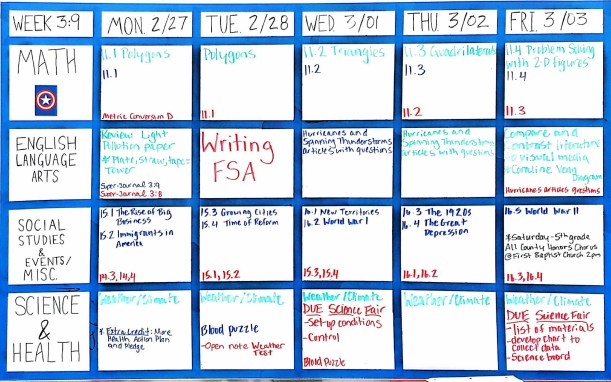 WEEK 3:9
MON. 2/27
TUE. 2/28
WED 3/01
THU 3/02
FRI 3/03
MATH
11.1 Polygons
11.1
Metric Conversion D
Polygons
11.1
11.2 Triangles
11.2
11.3 Quadrilaterals
11.3
11.2
11.4 Problem Solving
with 2-D figures
11.4
11.3
ENGLISH
LANGUAGE
ARTS
Review Light
Pollution paper
Tower
Super-Journal 3:9
Super-Journal 3:8
Writing
FSA
Hurricanes and
Spinning Thunderstorms
articles with questions
Hurricanes and
Spinning Thunderstorms
articles with questions
Compare and
contrast literature
visual media
Coraline Venn
Diagram
Hurricanes articles questions
SOCIAL
STUDIES
&
EVENTS/
MISC.
15.1 The Rise of Big
Business
15.2 Immigrants in
America
14.3, 14.4
15.3 Growing Cities
15.4 Time of Reform
15.1, 15.2
16.1 New Territories
16.2 World War I
15.3, 15.4
16.3 The 1920s
16.4 The Great
Depression
16.1, 16.2
16.5 World War II
*Saturday-5th grade
All County Honors Chorus
@First Baptist Church 2pm
16.3, 16.4
SCIENCE
&
HEALTH
Weather/Climate
* Extra Credit: More
Health Action Plan
and Pledge
Weather/Climate
Blood puzzle
-Open note Weather
Test
Weather/Climate
DUE Science Fair
-Set-up conditions
-Control
Blood Puzzle
Weather/Climate
Weather/Climate
DUE Science Fair
-list of materials
-develop chart to
collect data
-Science board